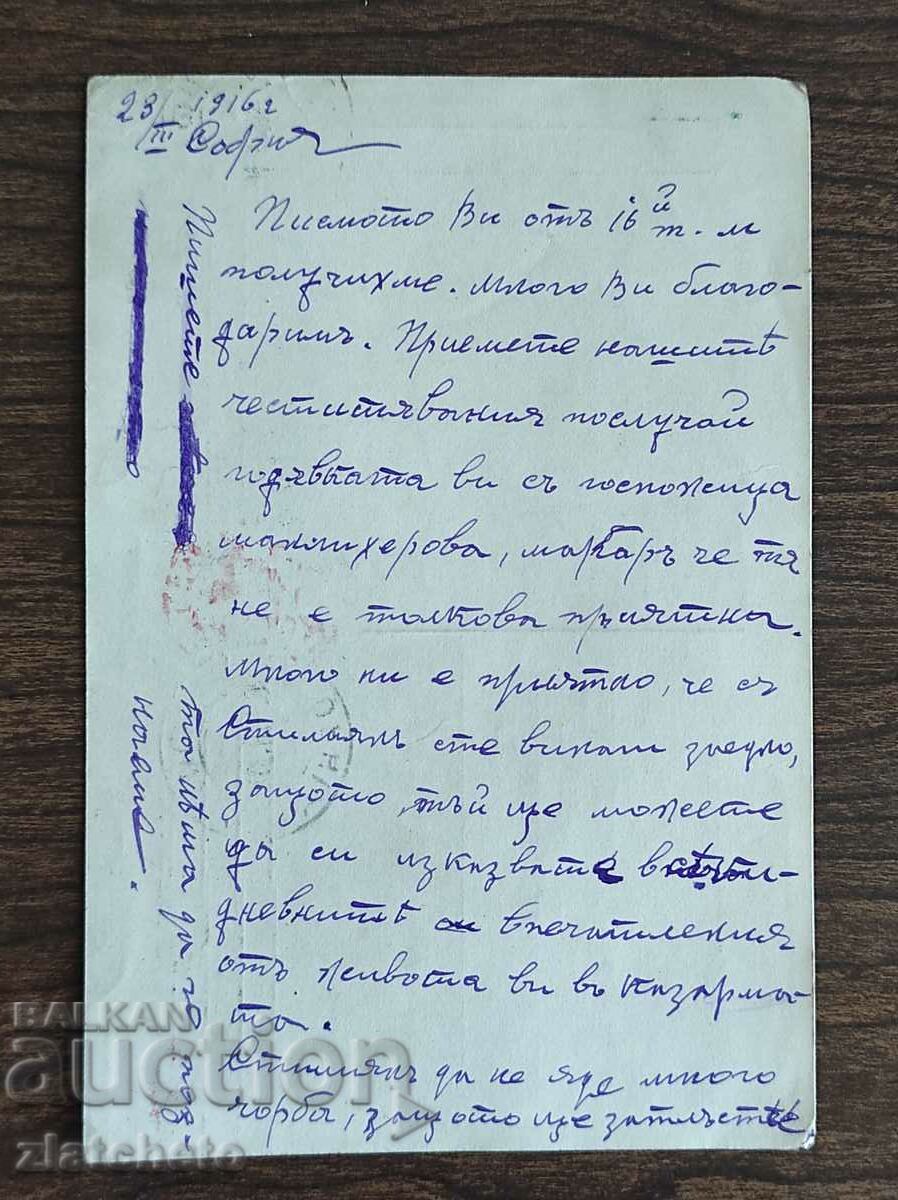 23/III 1916 г
София
Писмото Ви отъ 16 й т. м
получихме. Много Ви благо-
даримъ. Приемете нашитѣ
честитявания послучай
годявката ви съ госпожица
макаръ че тя
не е толкова приятна.
Много ни е приятно, че съ
Стилиянъ сте винаги заедно,
защото, тъй ще можете
да си изказвате
дневнитѣ впечатления
отъ живота ви въ казармa-
та.
Стилиянъ да не яде много
чорба, защото ще затлъстѣе
Пишете
та нѣма да го поз-
наеме.
BALKAN
auction
zlatcheto